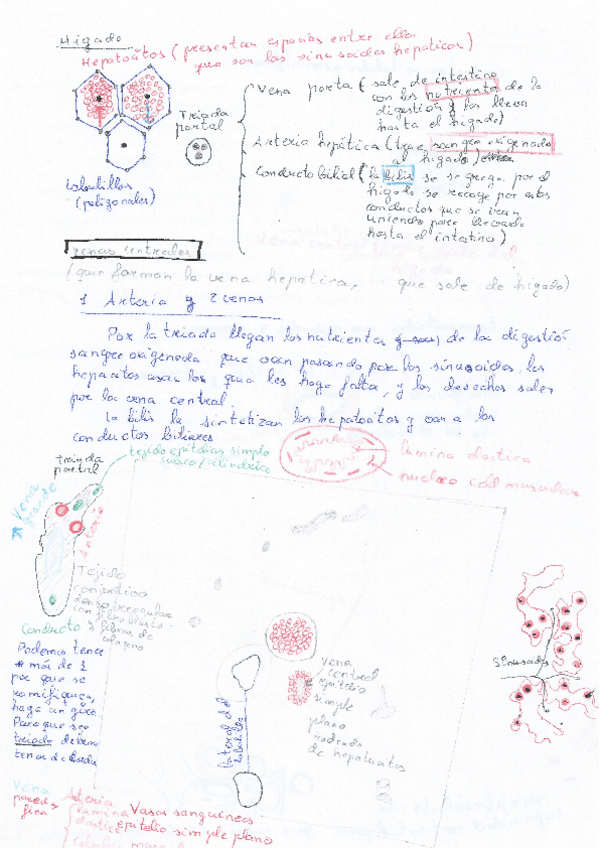 Higado
Hepatocitos (presentan espacios entre ellos
que son los sinusoides hepaticos)
Vena porta (sale de intestino
con los nutrientes de la
digestión y los lleva
hasta el higado)
Triada
portal
Arteria hepática (trae sangre oxigenada
al higado)
Conducto bilial (la bilis se segrega por el
higado se recoge por estos
conductos que se van
uniendo para llevarla
hasta el intestino)
Lobulillos
(poligonales)
Venas Centrales
(que forman la vena hepatica, que sale de higado)
1 Arteria y 2 venas
Por la triada llegan los nutrientes de la digestión
sangre oxigenada que van pasando por los sinusoides, los
hepatocitos usan los que les haga falta, y los desechos salen
por la vena central.
La bilis la sintetizan los hepatocitos y van a los
conductos biliares
Triada
portal
tejido epitelias simple
cubico/cilindrico
lamina elastica
nucleo cel musculares
Vena
grande
Arteria
Tejido
conjuntivo
denso irregular
con fibra elastica
y fibra de
colageno
Conducto
Podemos tener
más de 1
por que se
ramifique,
haga un giro
Para que sea
triada deben
tener de cada
Vena
central
epitelio
simple
plano
rodeada
de hepatocitos
lateral del
lobulillo
Sinusoides
Vena
pared
fina
Arteria
lamina
elastica
Vasos sanguineos
epitelio simple plano